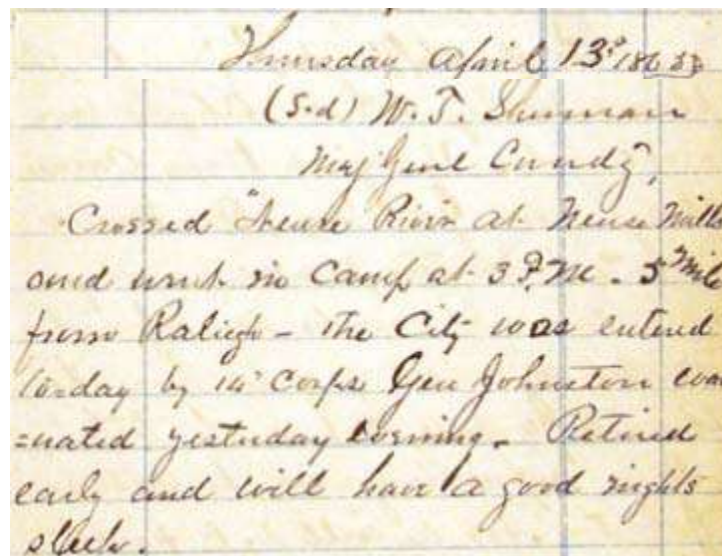 Thursday April 13th 1865
(S-d) W. T. Sherman
Maj Genl Comdg,
Crossed Neuse River at Neuse Mills
and went in Camp at 3 P.M. - 5 Mile
from Raligh - the City was entered
to-day by 14" Corps Gen Johnston evac
=uated yesterday evening. Retired
early and will have a good nights
sleep.